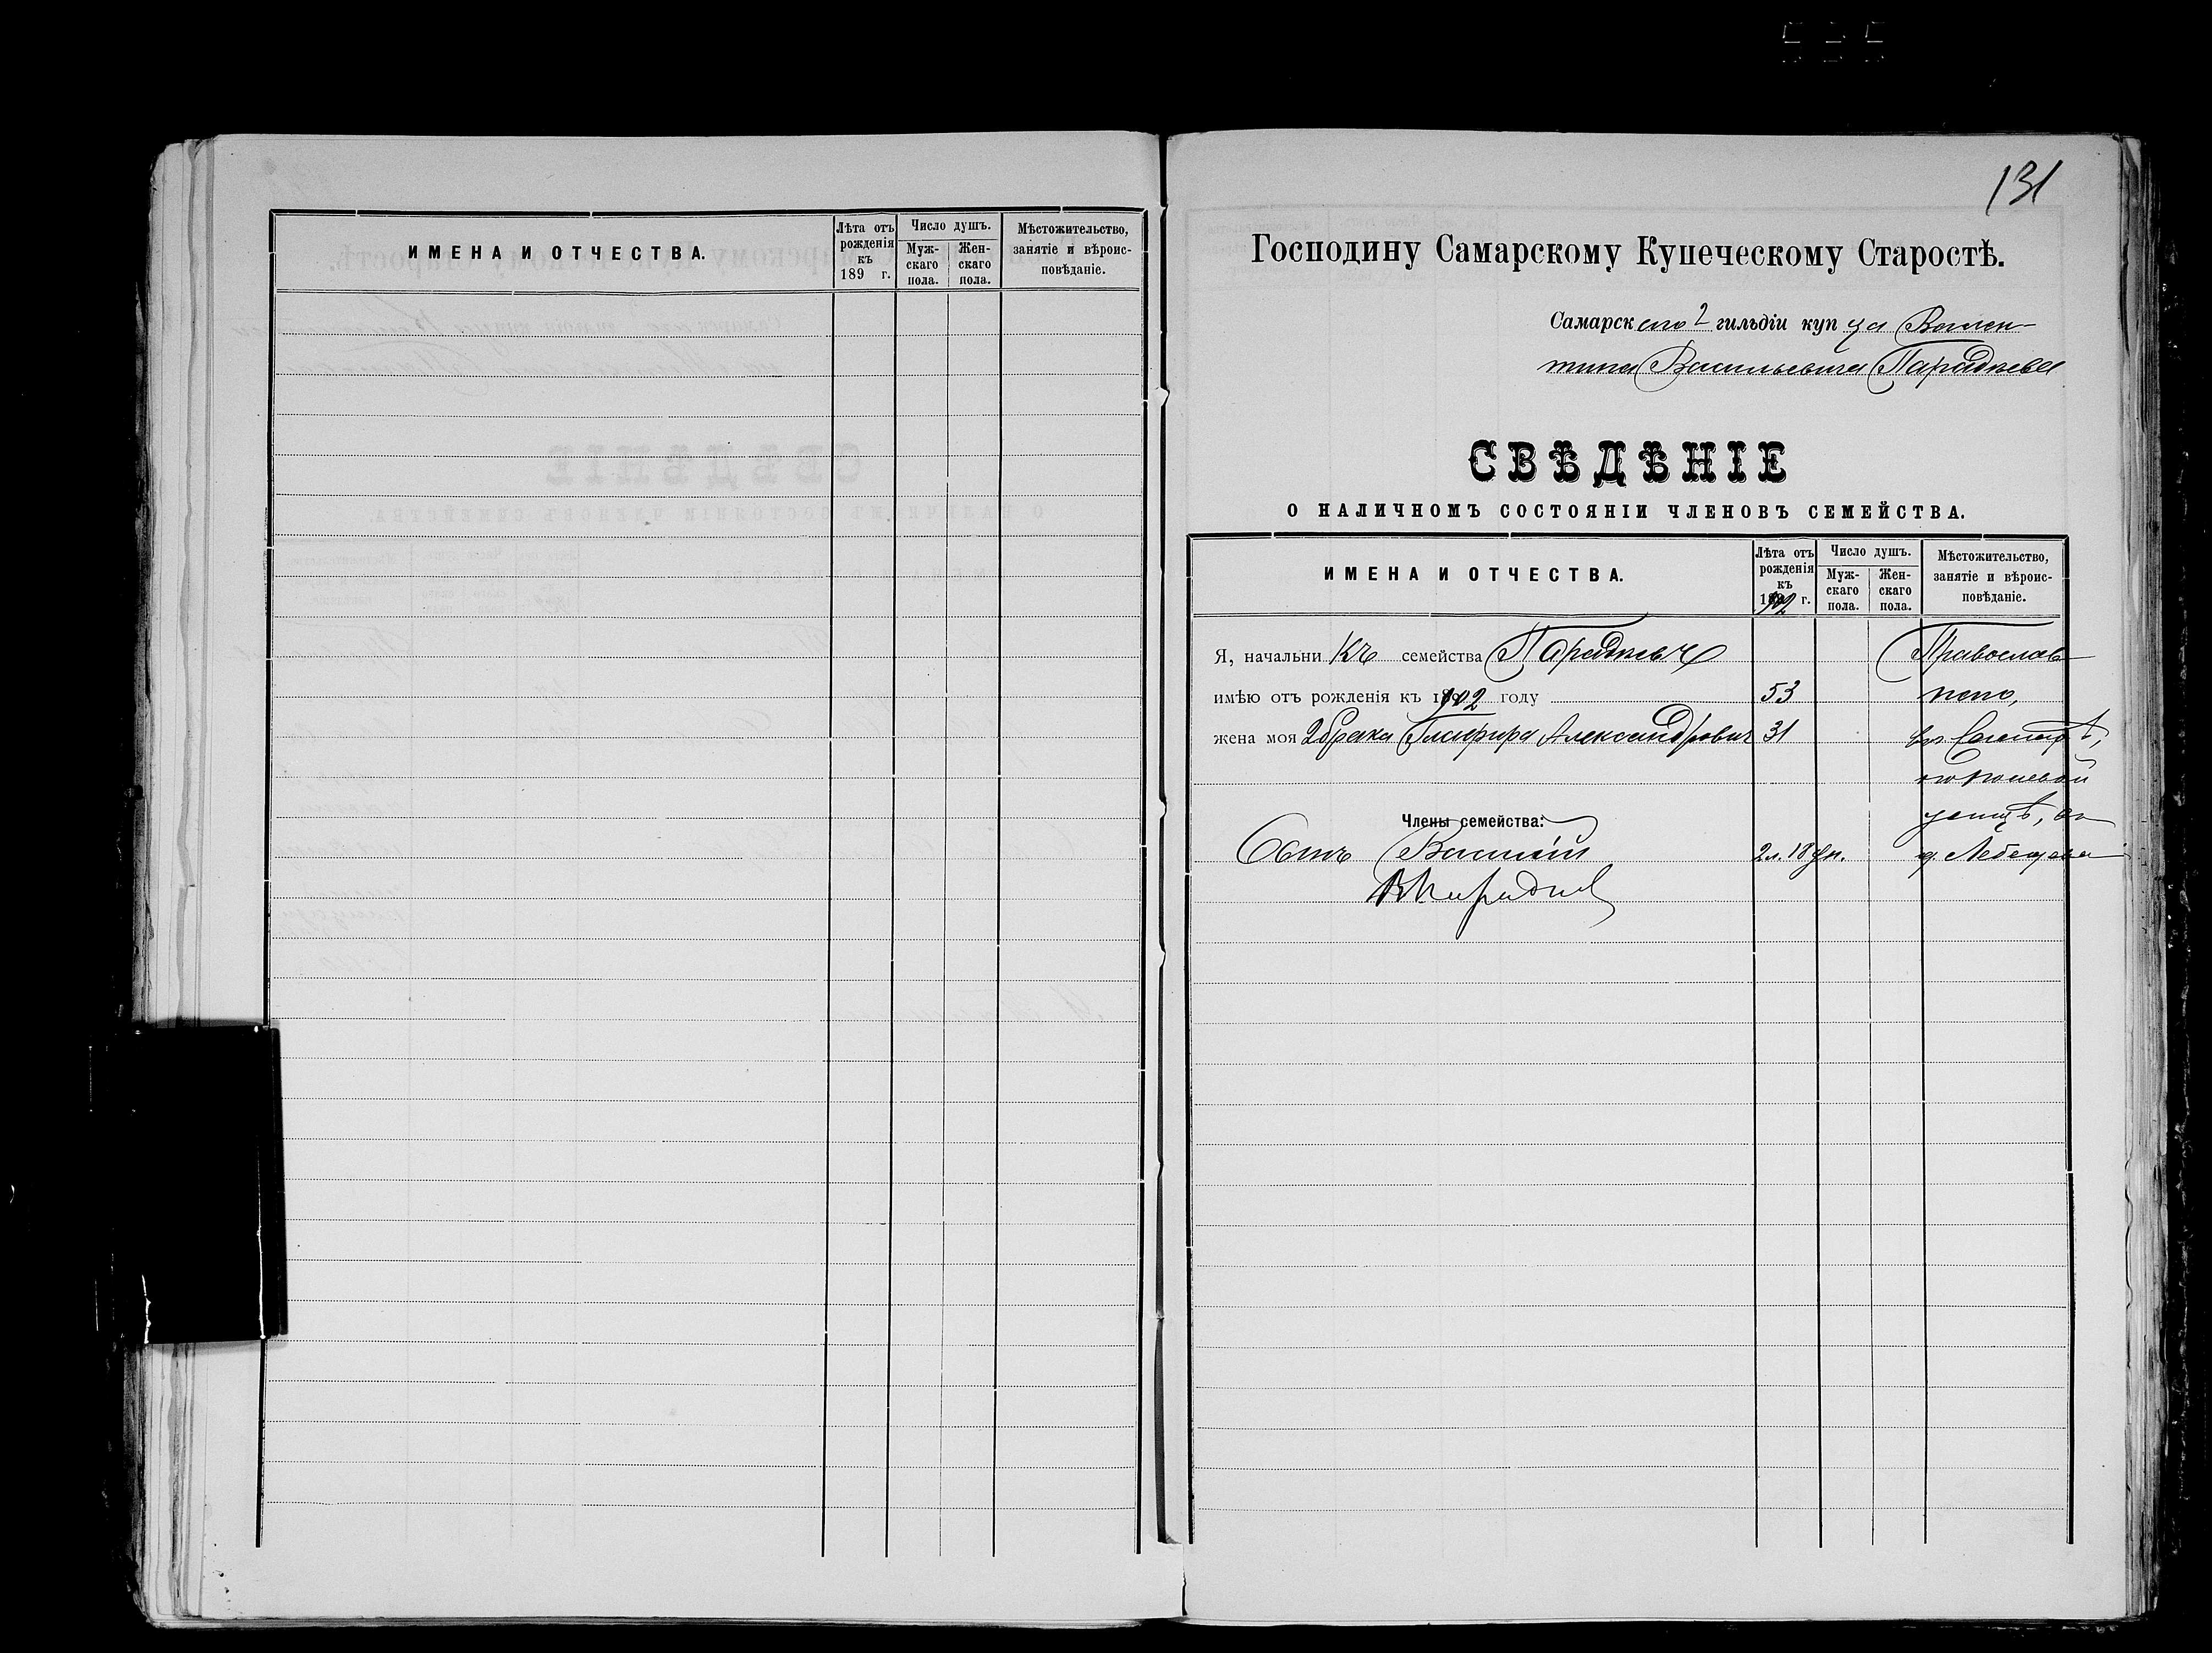 ИМЕНА И ОТЧЕСТВА.
Лѣта отъ рожденія къ 189 г.
Число душъ.
Мужскаго пола.
Женскаго пола.
Мѣстожительство, занятіе и вѣроисповѣданіе.
131
Господину Самарскому Купеческому Старостѣ.
Самарскаго 2 гильдіи купца Вален-
тина Васильевича Париднева
СВѢДѢНІЕ
О НАЛИЧНОМЪ СОСТОЯНІИ ЧЛЕНОВЪ СЕМЕЙСТВА.
ИМЕНА И ОТЧЕСТВА.
Лѣта отъ рожденія къ 1902 г.
Число душъ.
Муж-скаго пола.
Жен-скаго пола.
Мѣстожительство, занятіе и вѣроис-повѣданіе.
Я, начальникъ семейства Паридневъ Православ-
имѣю отъ рожденія къ 1902 году 53 наго,
жена моя 2 брака Глафира Александрович 31 въ Самарѣ,
Члены семейства: улицѣ, въ
Сынъ Василій 2 л. 18 дн. д. Лебедева